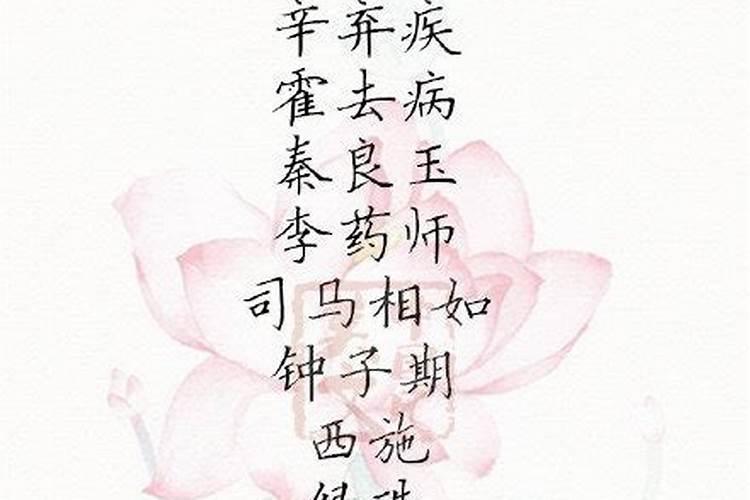 辛弃疾
霍去病
秦良玉
李药师
司马相如
钟子期
西施